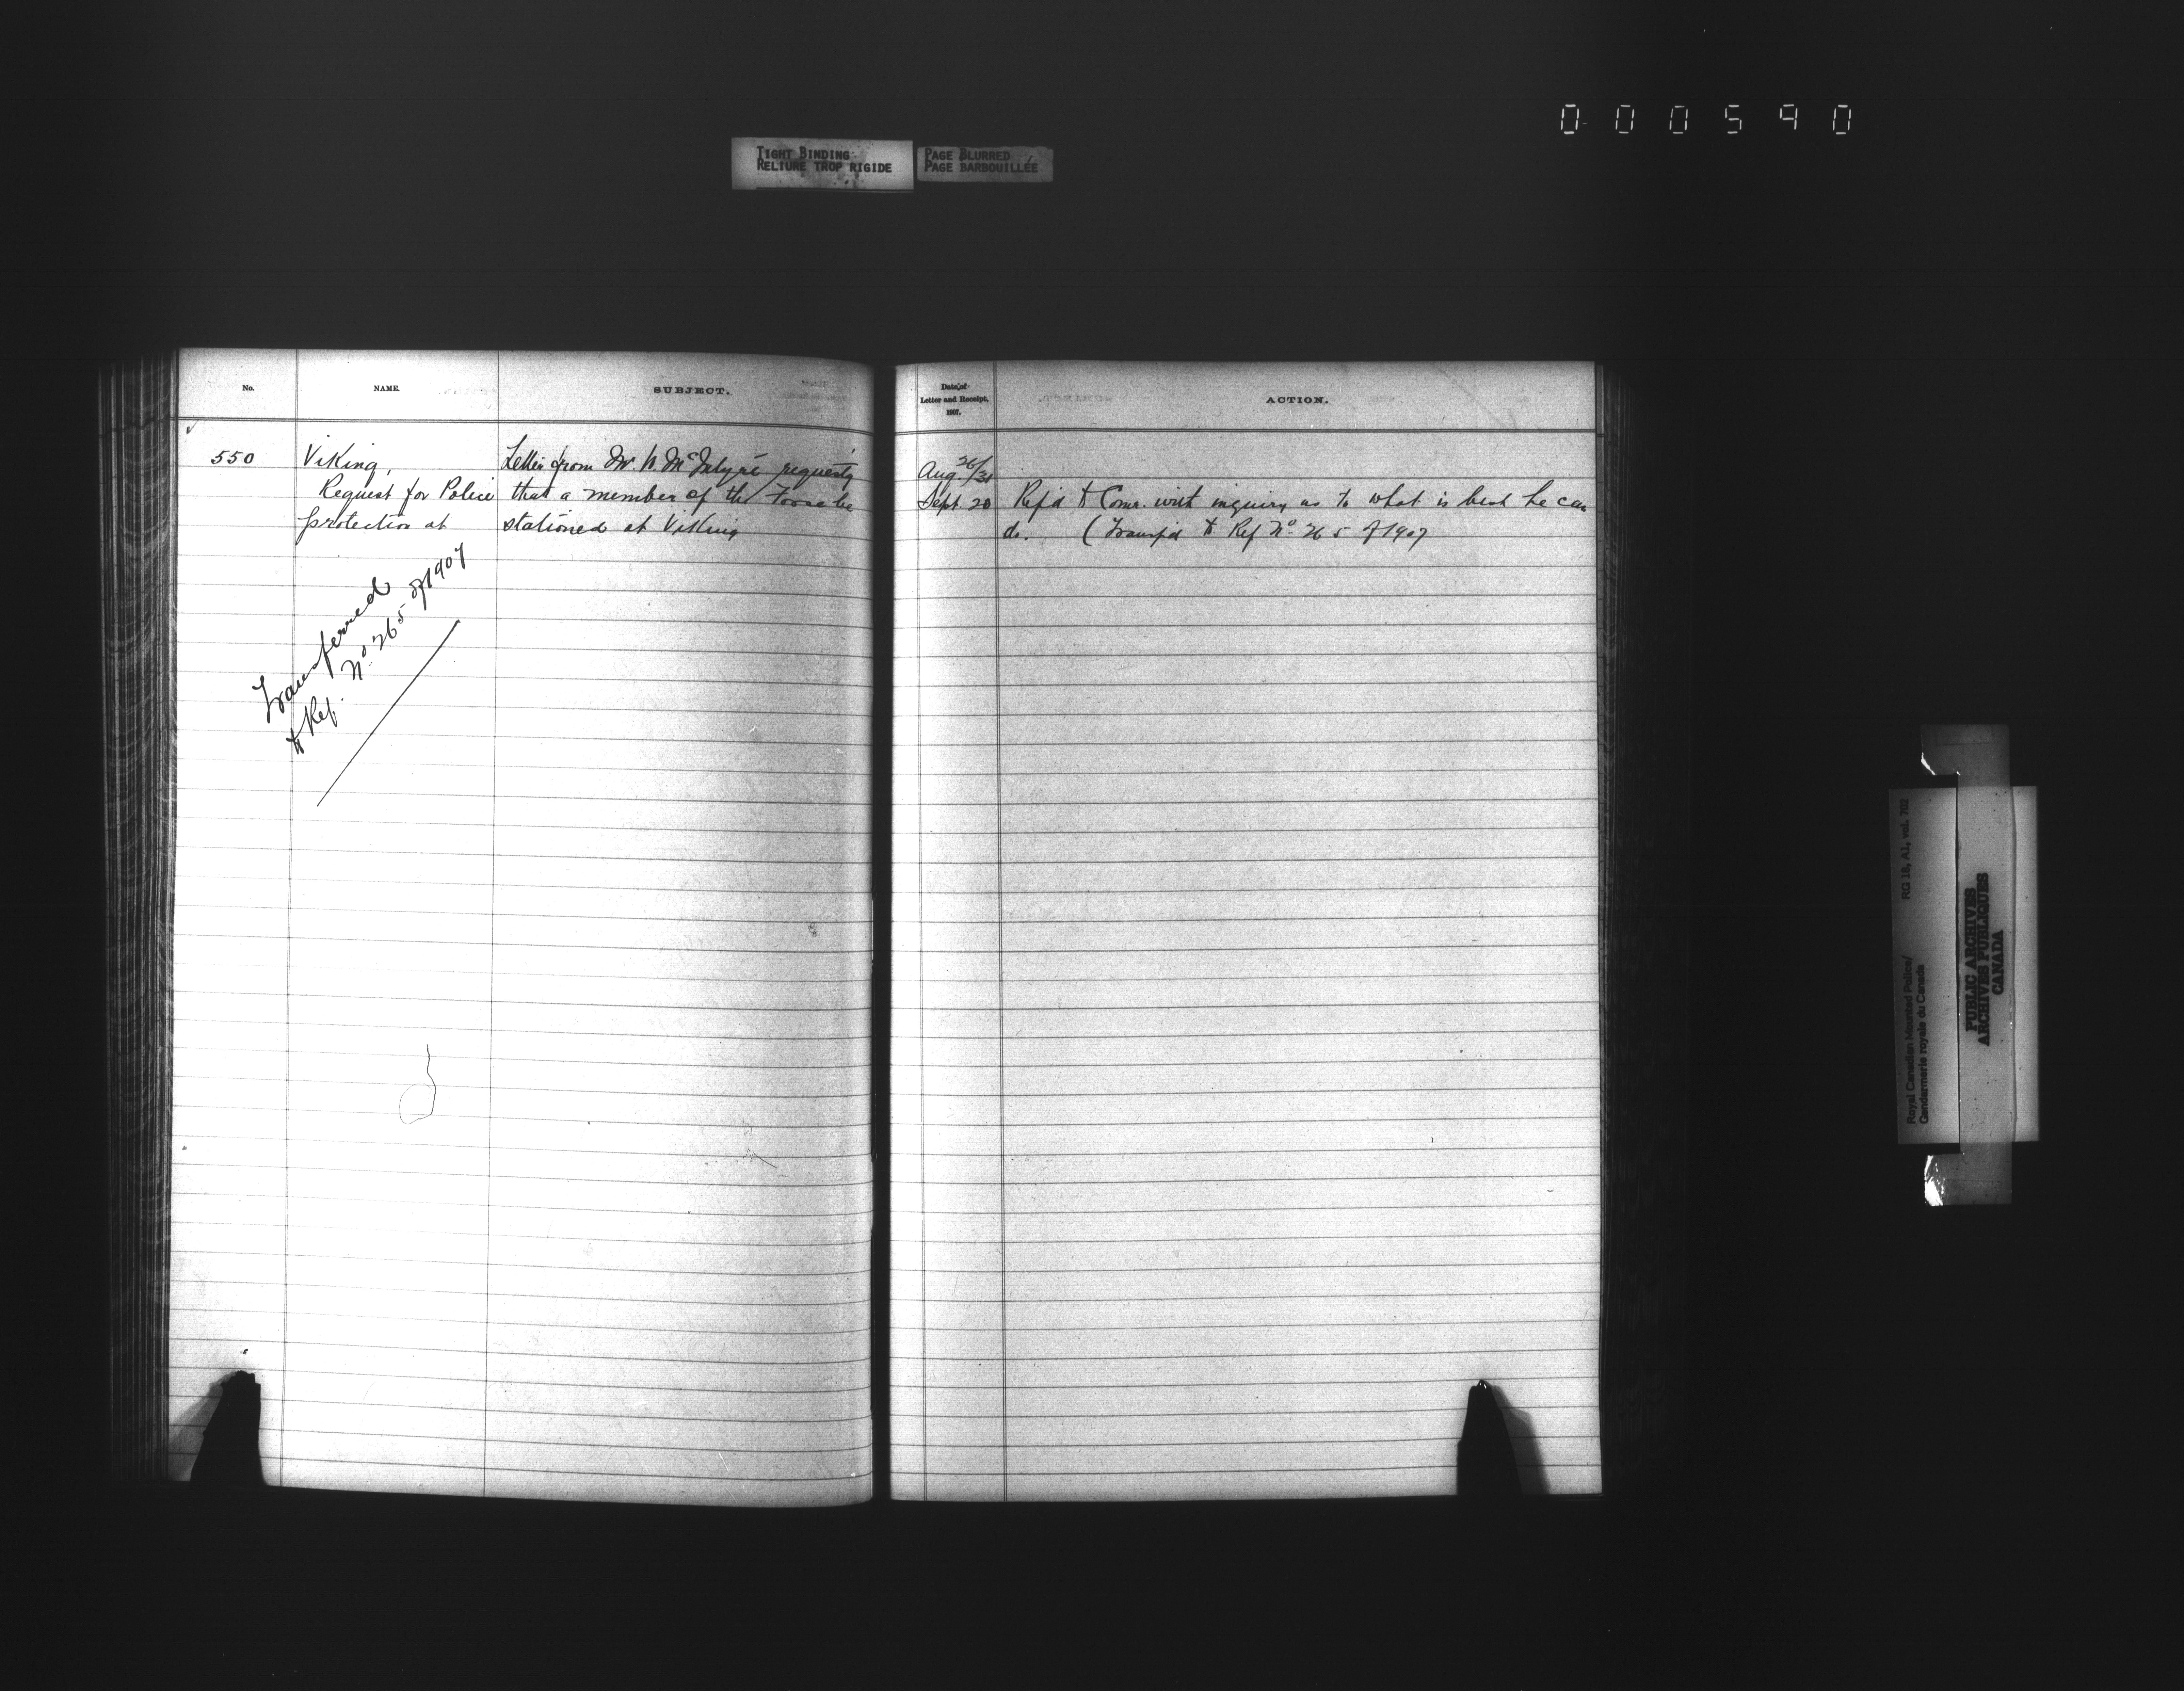 000590
TIGHT BINDING
RELIURE TROP RIGIDE
PAGE BLURRED
PAGE BARBOUILLÉE
No.
NAME.
SUBJECT.
550
Viking,
Request for Police
protection at
Letter from Mr. McIntyre requestg
that a member of the Force be
stationed at Viking
Transferred
to Ref. No. 265 of 1907
Date of
Letter and Receipt,
1907.
ACTION.
Aug. 26/31
Sept. 20 Ref'd to Comr. with inquiry as to what is best he can
do. (Transf'd to Ref No. 265 of 1907
Royal Canadian Mounted Police/
Gendarmerie royale du Canada
RG 18, A1, vol. 702
PUBLIC ARCHIVES
ARCHIVES PUBLIQUES
CANADA